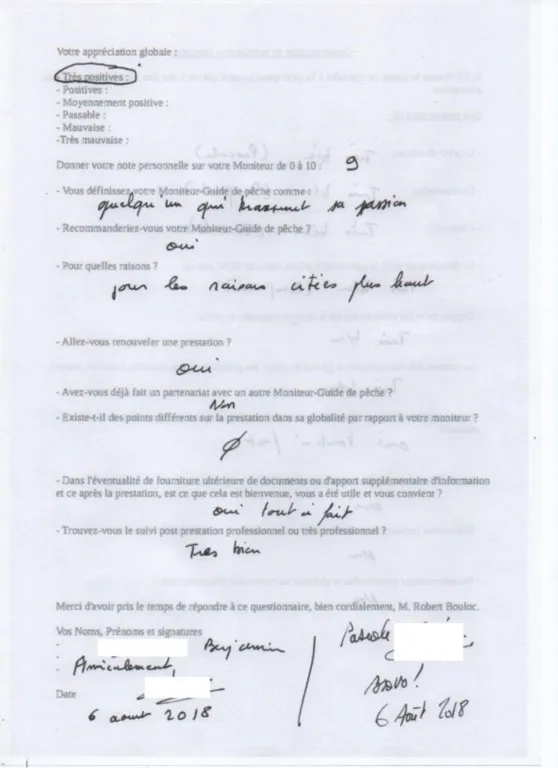 Votre appréciation globale :
- Très positives :
- Positives :
- Moyennement positive :
- Passable :
- Mauvaise :
-Très mauvaise :
Donner votre note personnelle sur votre Moniteur de 0 à 10 : 9
- Vous définissez votre Moniteur-Guide de pêche comme :
quelqu'un qui transmet sa passion
- Recommanderiez-vous votre Moniteur-Guide de pêche ?
oui
- Pour quelles raisons ?
pour les raisons citées plus haut
- Allez-vous renouveler une prestation ?
oui
- Avez-vous déjà fait un partenariat avec un autre Moniteur-Guide de pêche ?
Non
- Existe-t-il des points différents sur la prestation dans sa globalité par rapport à votre moniteur ?
Ø
- Dans l'éventualité de fourniture ultérieure de documents ou d'apport supplémentaire d'information
et ce après la prestation, est ce que cela est bienvenue, vous a été utile et vous convient ?
oui tout à fait
- Trouvez-vous le suivi post prestation professionnel ou très professionnel ?
Tres bien
Merci d'avoir pris le temps de répondre à ce questionnaire, bien cordialement, M. Robert Bouloc.
Vos Noms, Prénoms et signatures
- Benjamin
- Amicalement,
Date
6 aout 2018
Pascale
BRAVO !
6 Août 2018